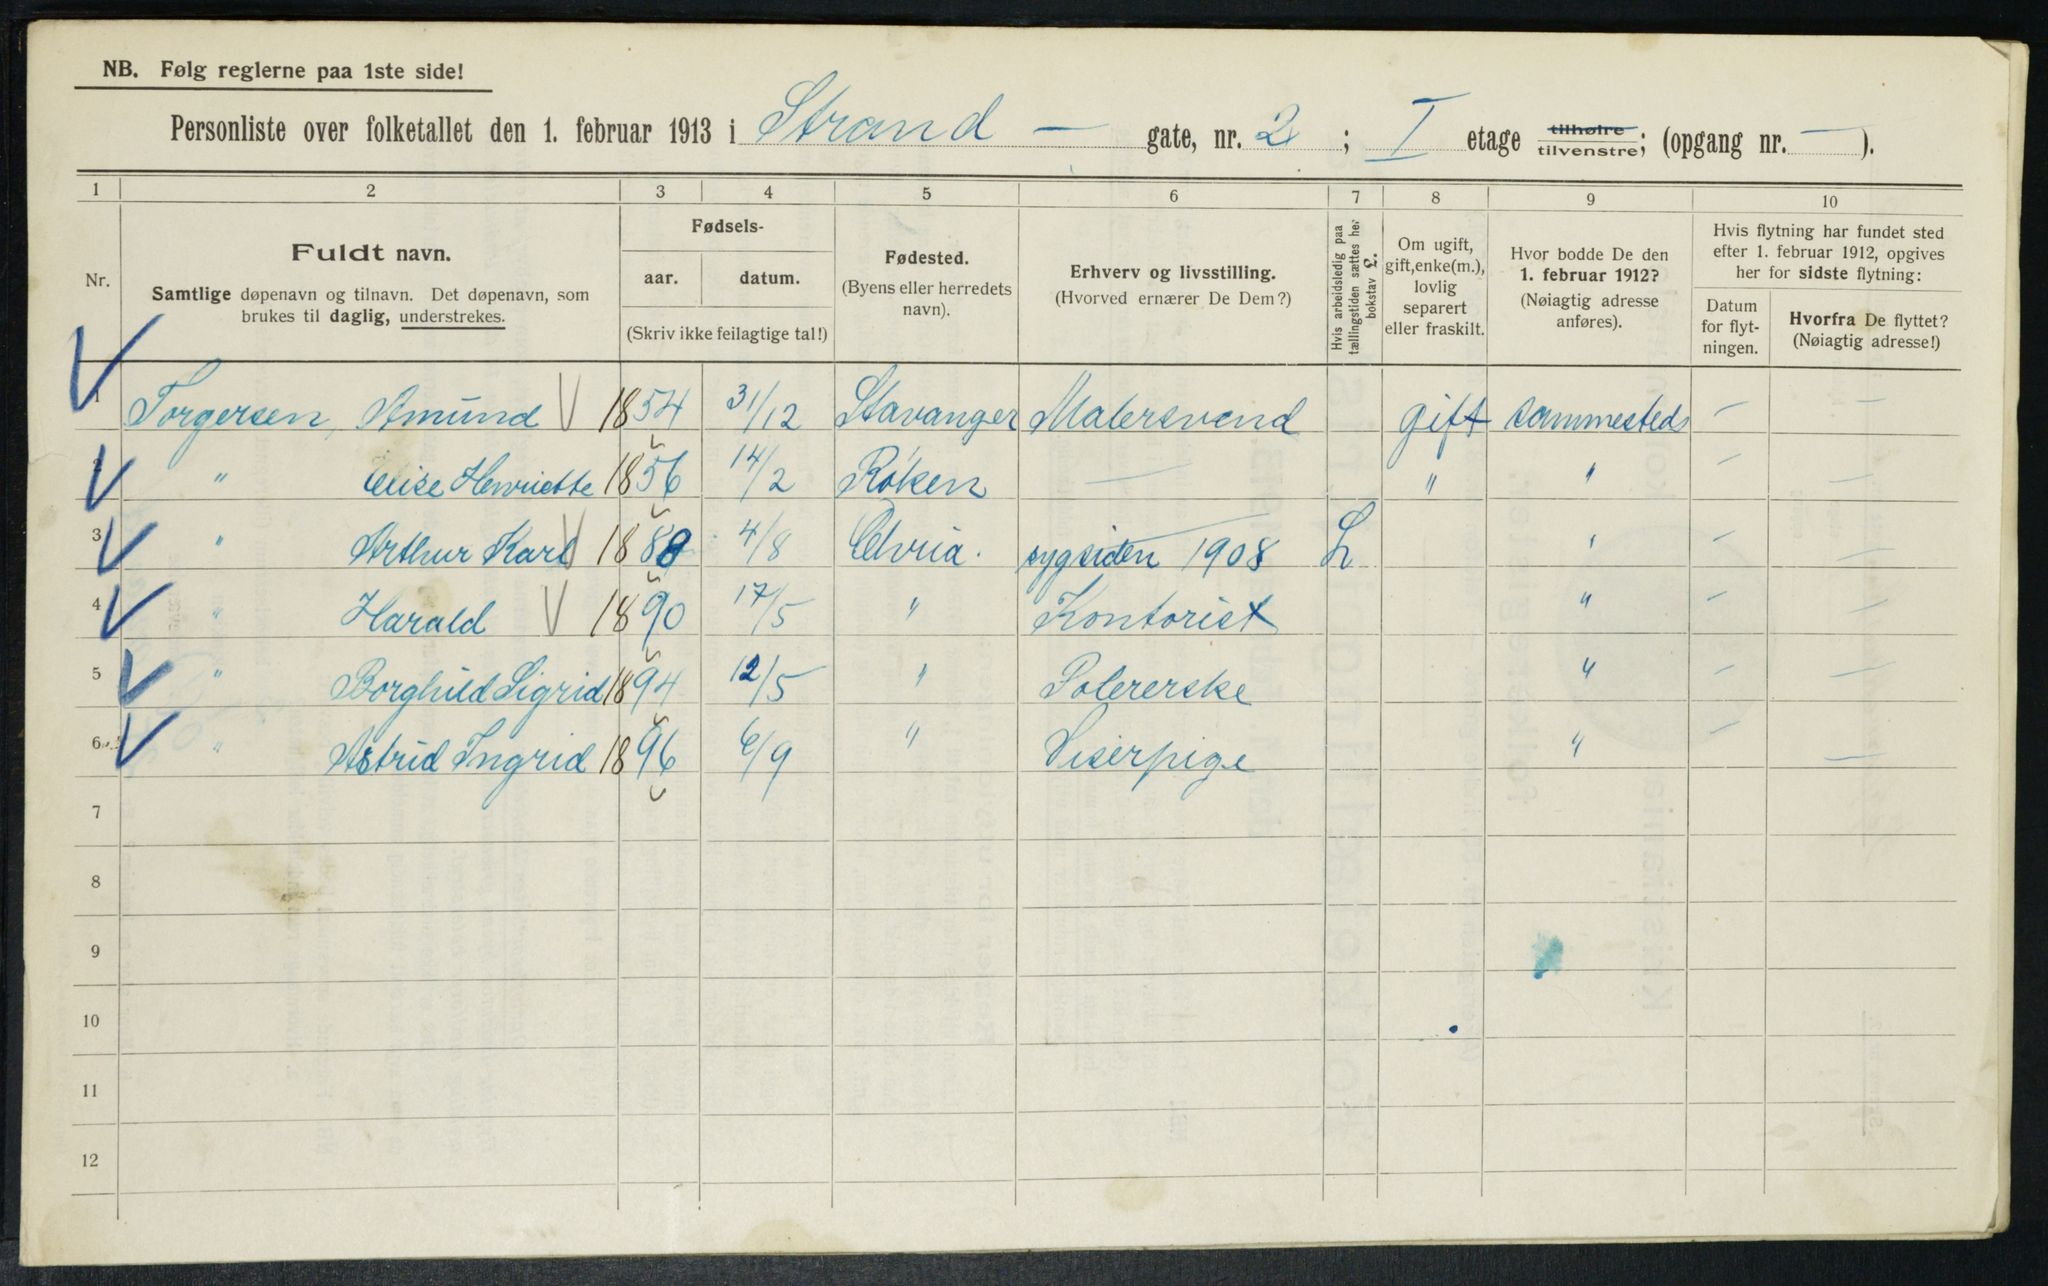 NB. Følg reglerne paa 1ste side!
Personliste over folketallet den 1. februar 1913 i Strand — gate, nr. 2 ; I etage tilhøire tilvenstre; (opgang nr. — ).
1 2 3 4 5 6 7 8 9 10
Nr.
Fuldt navn.
Samtlige døpenavn og tilnavn. Det døpenavn, som
brukes til daglig, understrekes.
Fødsels-
aar. datum.
(Skriv ikke feilagtige tal!)
Fødested.
(Byens eller herredets
navn).
Erhverv og livsstilling.
(Hvorved ernærer De Dem?)
Hvis arbeidsledig paa
tællingstiden sættes her
bokstav L.
Om ugift,
gift, enke(m.),
lovlig
separert
eller fraskilt.
Hvor bodde De den
1. februar 1912?
(Nøiagtig adresse
anføres).
Hvis flytning har fundet sted
efter 1. februar 1912, opgives
her for sidste flytning:
Datum
for flyt-
ningen.
Hvorfra De flyttet?
(Nøiagtig adresse!)
1 Torgersen, Amund 1854 31/12 Stavanger Malersvend gift sammesteds — —
2 " Elise Henriette 1856 14/2 Røken — " " — —
3 " Arthur Karl 1888 4/8 sygsiden 1908 L " —
4 " Harald 1890 17/5 " Kontorist " — —
5 " Borghild Sigrid 1894 12/5 " Polererske " — —
6 " Astrid Ingrid 1896 6/9 " Viserpige " — —
7
8
9
10
11
12